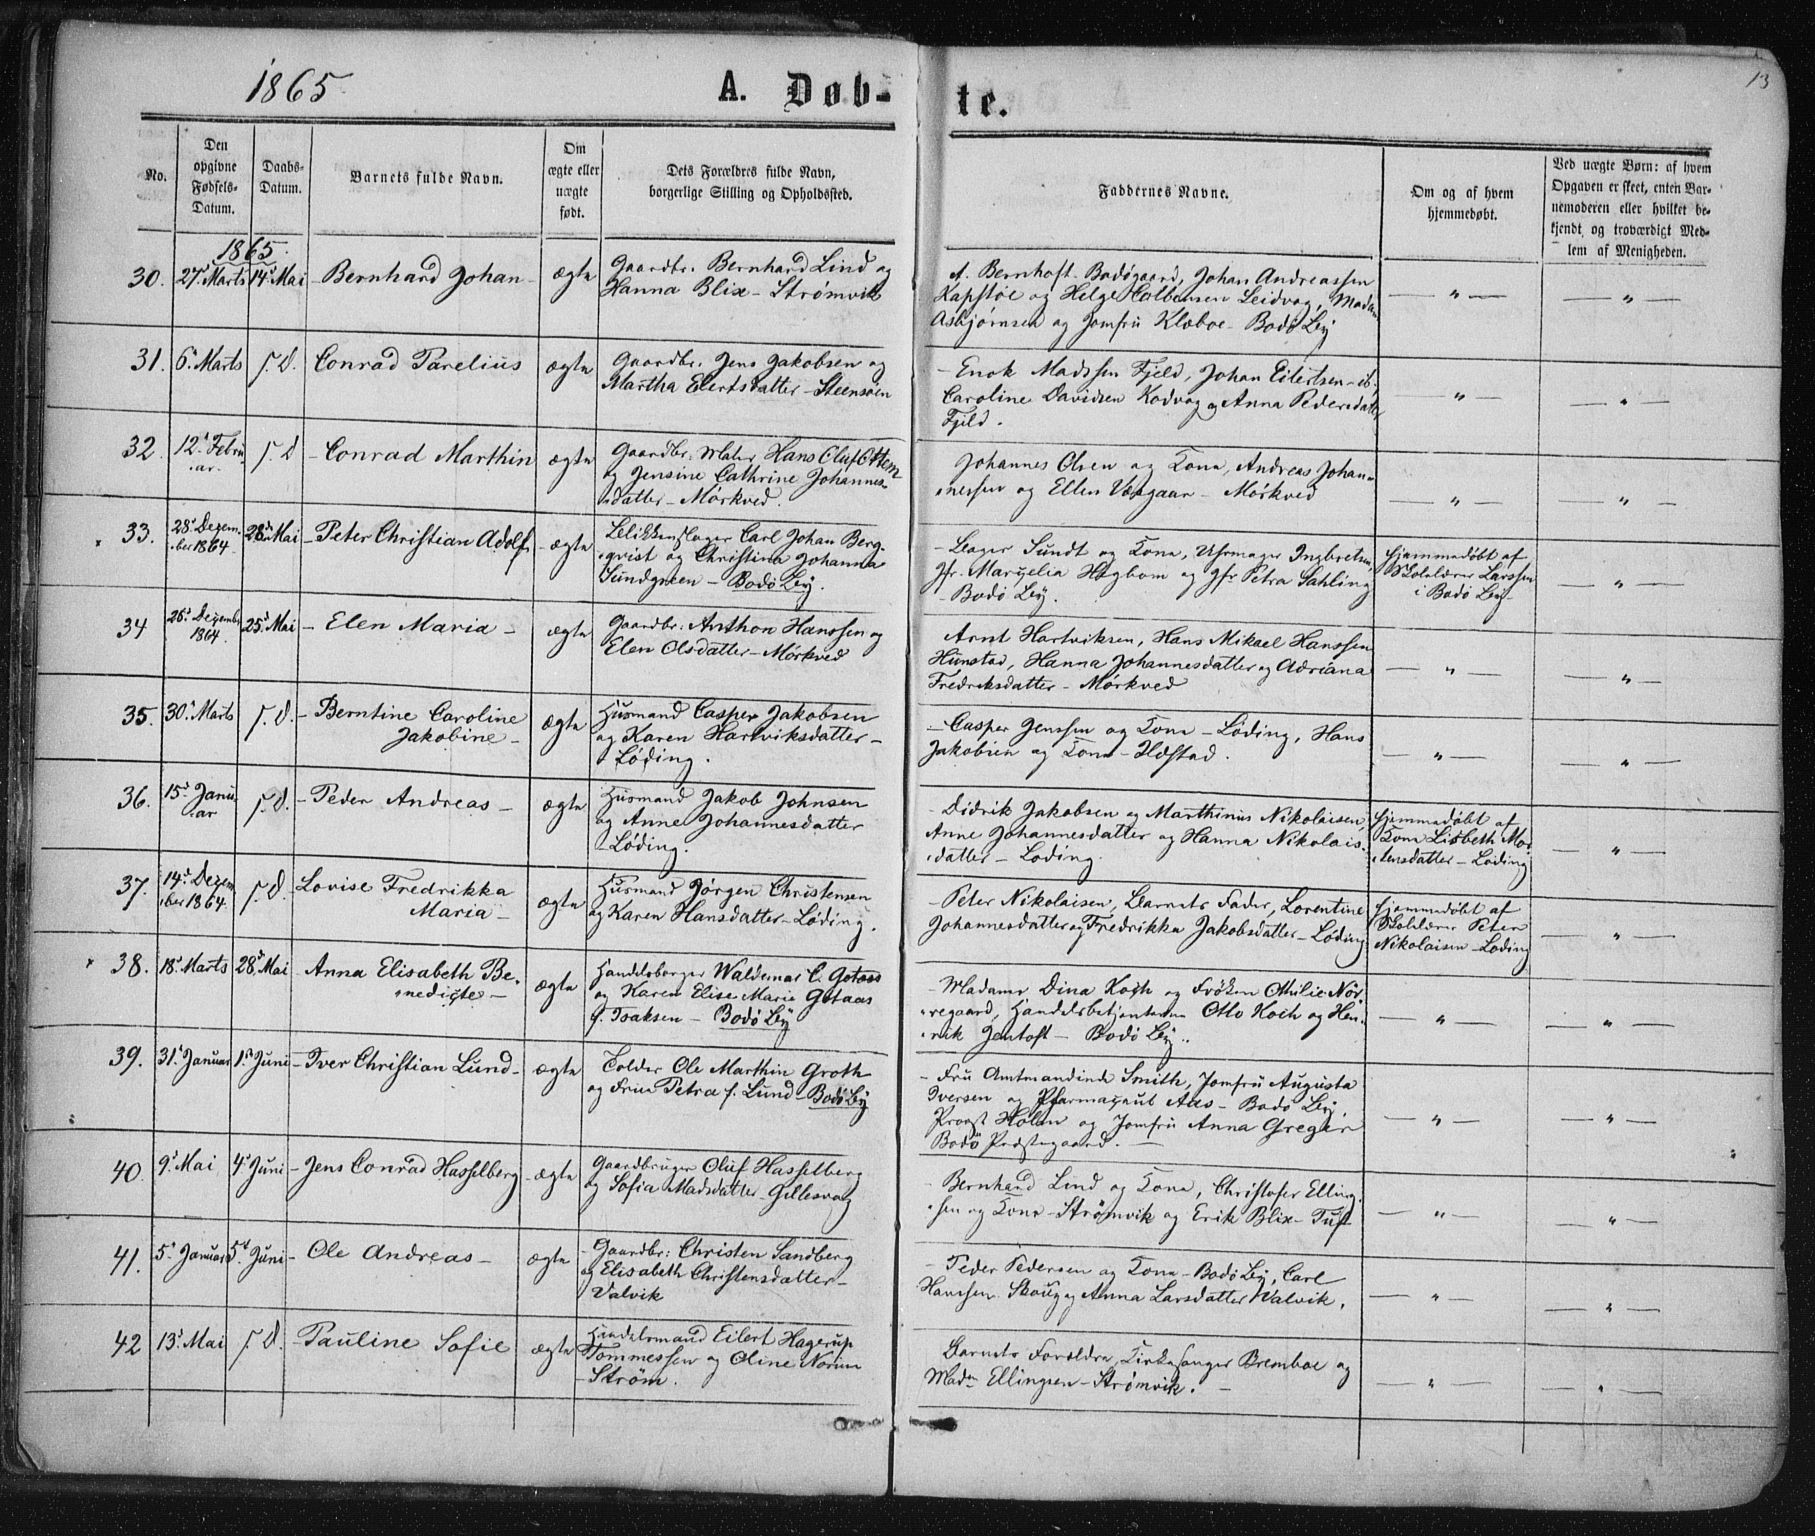 1865
A. Døb-
te.
13
No.
Den
opgivne
Fødsels-
Datum.
Daabs-
Datum.
Barnets fulde Navn.
Om
ægte eller
uægte
født.
Dets Forældres fulde Navn,
borgerlige Stilling og Opholdssted.
Faddernes Navne.
Om og af hvem
hjemmedøbt.
Ved uægte Børn: af hvem
Opgaven er skeet, enten Bar-
nemoderen eller hvilket be-
kjendt og troværdigt Med-
lem af Menigheden.
1865.
30. 27de Marts 14de Mai Bernhard Johan - ægte
Gaardbr. Bernhard Lind og
Hanna Blix - Strømvik
A. Bernhoft Bodøgaard, Johan Andreassen
Kapstøe og Helge Colbensen Leidvag, Madm
Asbjørnsen og Jomfru Klæboe - Bodø By
— " —
— " —
31. 6. Marts s. D. Conrad Parelius ægte
Gaardbr. Jens Jakobsen og
Martha Elertsdatter - Steensøen
- Enok Madssen Fjeld, Johan Eilertsen - ib.
Caroline Davidsen Kodvag og Anna Pedersdatter
Fjeld.
" —
— " —
32. 12. Febru
ar. s. D - Conrad Marthin ægte
Gaardbr. Maler Hans Oluf Ottem
og Jensine Cathrine Johannes-
datter - Mørkved.
Johannes Olsen og Kona, Andreas Johan-
nessen og Ellen Vægaar - Mørkved
— " —
"
33. 28. Dezem
ber 1864. 28de Mai - Peter Christian Adolf - ægte
Carl Johan Berg-
qvist og Christina Johanna
Sundgreen - Bodø By.
- Sundt og Kona, Uhrmager Ingbretsen
Jfr. Marselia Høgbom og Jfr Petra Sahling
- Bodø By.
Hjemmedøbt af
Skolelærer Larssen
i Bodø By -
— " —
34 26. Dezember
1864. 25. Mai - Elen Maria - ægte
Gaardbr: Anthon Hanssen og
Elen Olsdatter - Mørkved
Arnt Hartviksen, Hans Mikael Hanssen
Hunstad, Hanna Johannesdatter og Adriana
Fredriksdatter - Mørkved
— " —
— " —
35. 30. Marts s. D. - Berntine Caroline
Jakobine - ægte
Husmand Casper Jakobsen
og Karen Hartviksdatter -
- Løding.
- Casper Jenssen og Kona - Løding, Hans
Jakobsen og Kona - Ildstad.
— " —
— " —
36. 15. Janu
ar s. D. - Peder Andreas - ægte
Husmand Jakob Johnsen
og Anne Johannesdatter
- Løding.
- Didrik Jakobsen og Marthinus Nikolaisen,
Anne Johannesdatter og Hanna Nikolais-
datter - Løding.
Hjemmedøbt af
Kona Lisbeth Mor-
tensdatter - Løding
— " —
37. 14. Dezem
ber 1864. s. D. - Lovise Fredrikka
Maria - ægte
Husmand Jørgen Christensen
og Karen Hansdatter - Løding.
- Peter Nikolaisen, Barnets Fader, Lorentine
Johannesdatter og Fredrikka Jakobsdatter - Løding
Hjemmedøbt af
Skolelærer Peter
Nikolaisen - Løding
— " —
38. 18. Marts 28. Mai - Anna Elisabeth Be-
nedicte - ægte
Handelsborger Waldemar C. Gotaas
og Karen Elise Marie Gotaas
f. Isaksen - Bodø By
- Madame Dina Koch og Frøken Othilie Nør-
regaard, Handelsbetjentene Otto Koch og Hen-
rik Jentoft - Bodø By.
— " —
— " —
39. 31. Januar 1ste Juni - Iver Christian Lund - ægte
Tolder Ole Marthin Groth
og Frue Petra f. Lund - Bodø By
- Fru Amtmandinde Smith, Jomfru Augusta
Iversen og Pharmaceut Aas - Bodø By,
Provst Holm og Jomfru Anna Greger
Bodø Præstegaard. —
— " —
— " —
40. 9. Mai 4. Juni - Jens Conrad Hasselberg - ægte
Gaardbruger Oluf Hasselberg
og Sofia Madsdatter - Gillesvag
- Bernhard Lind og Kona, Christofer Elling-
sen og Kona - Strømvik og Erik Blix - Tuf
— " —
— " —
41. 5. Januar 5d Juni - Ole Andreas - ægte
- Gaardbr: Christen Sandberg
og Elisabeth Christensdatter -
- Valvik
- Peder Pedersen og Kona - Bodø By, Carl
Hanssen Skoug og Anna Larsdatter Valvik.
— " —
— " —
42 13. Mai s. D. - Pauline Sofie ægte
Handelsmand Eilert Hagerup
Tommessen og Oline Norum
- Strøm.
Barnets Forældre, Kirkesanger Bremboe og
Madm Ellingsen - Strømvik. -
— " —
— " —